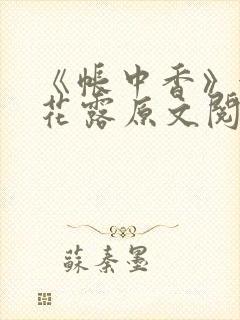 《帐中香》
花露原文阅
蘇秦墨